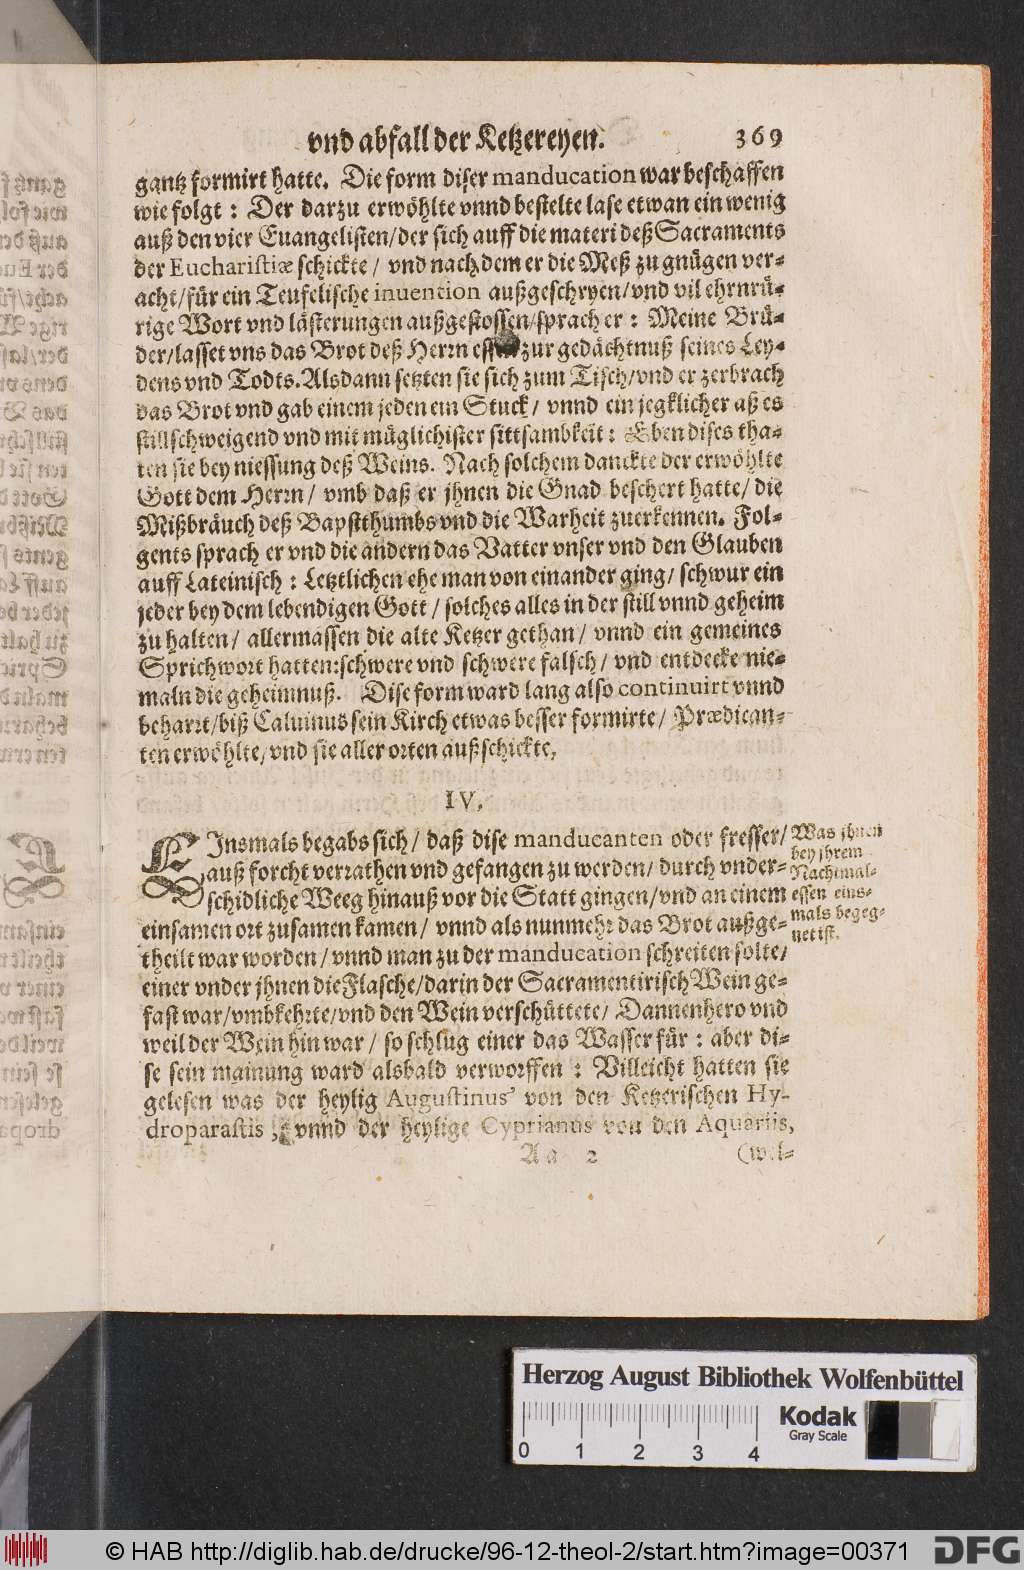 vnd abfall der Ketzereyen. 369
gantz formirt hatte. Die form diser manducation war beschaffen
wie folgt: Der darzu erwöhlte vnnd bestelte lase etwan ein wenig
auß den vier Euangelisten/der sich auff die materi deß Sacraments
der Eucharistiæ schickte/ vnd nach dem er die Meß zu gnügen ver-
acht/für ein Teufelische inuention außgeschryen/vnd vil ehrnrü-
rige Wort vnd lästerungen außgestossen/sprach er: Meine Brü-
der/lasset vns das Brot deß Herrn essen zur gedächtnuß seines Ley-
dens vnd Todts. Alsdann setzten sie sich zum Tisch/vnd er zerbrach
das Brot vnd gab einem jeden ein Stuck/ vnnd ein jegklicher aß es
stillschweigend vnd mit müglichister sittsambkeit: Eben dises tha-
ten sie bey niessung deß Weins. Nach solchem danckte der erwöhlte
Gott dem Herrn/ vmb daß er jhnen die Gnad beschert hatte/ die
Mißbräuch deß Bapstthumbs vnd die Warheit zuerkennen. Fol-
gents sprach er vnd die andern das Vatter vnser vnd den Glauben
auff Lateinisch: Letztlichen ehe man von einander ging/ schwur ein
jeder bey dem lebendigen Gott/ solches alles in der still vnnd geheim
zu halten/ allermassen die alte Ketzer gethan/ vnnd ein gemeines
Sprichwort hatten: schwere vnd schwere falsch/ vnd entdecke nie-
maln die geheimnuß. Dise form ward lang also continuirt vnnd
beharrt/biß Caluinus sein Kirch etwas besser formirte/ Prædican-
ten erwöhlte/vnd sie aller orten außschickte.
IV.
EInsmals begabs sich/ daß dise manducanten oder fresser/
auß forcht verrathen vnd gefangen zu werden/ durch vnder-
schidliche Weeg hinauß vor die Statt gingen/vnd an einem
einsamen ort zusamen kamen/ vnnd als nunmehr das Brot außge-
theilt war worden/vnnd man zu der manducation schreiten solte/
einer vnder jhnen die Flasche/darin der Sacramentirisch Wein ge-
fast war/vmbkehrte/vnd den Wein verschüttete/ Dannenhero vnd
weil der Wein hin war/ so schlug einer das Wasser für: aber di-
se sein mainung ward alsbald verworffen: Villeicht hatten sie
gelesen was der heylig Augustinus von den Ketzerischen Hy-
droparastis, vnnd der heylige Cyprianus von den Aquariis,
Aa 2 (wel-
Was jhnen
bey jhrem
Nachtmal-
essen eins-
mals begeg-
net ist.
Herzog August Bibliothek Wolfenbüttel
Kodak
Gray Scale
0 1 2 3 4
© HAB http://diglib.hab.de/drucke/96-12-theol-2/start.htm?image=00371
DFG